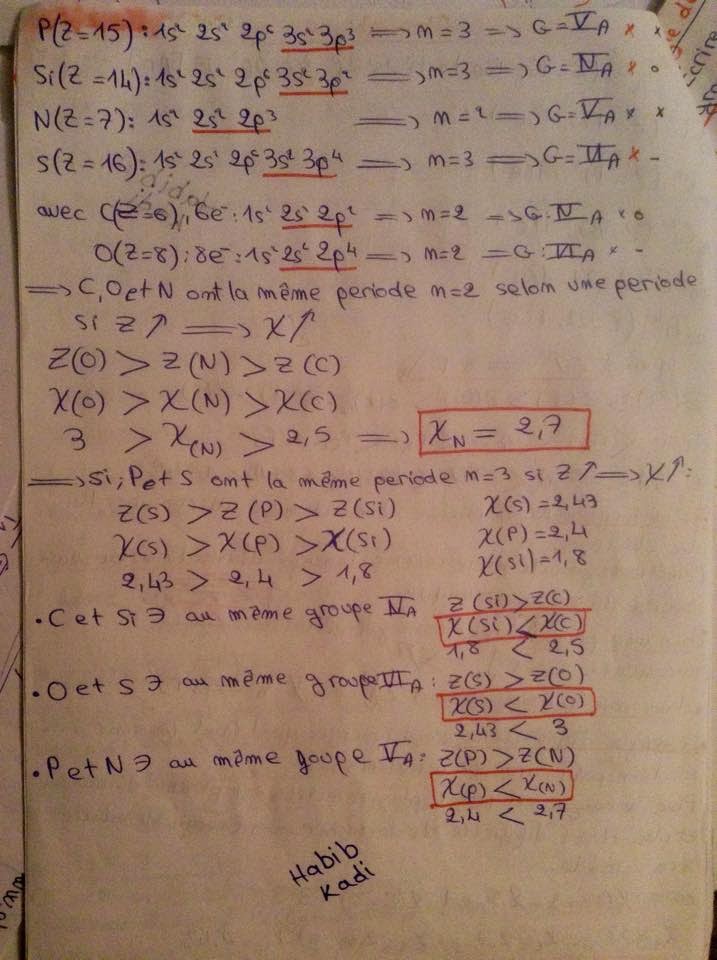 P(Z=15): 1s² 2s² 2p⁶ 3s² 3p³ ⟹ n=3 ⟹ G=V_A × ×
Si(Z=14): 1s² 2s² 2p⁶ 3s² 3p² ⟹ n=3 ⟹ G=IV_A × o
N(Z=7): 1s² 2s² 2p³ ⟹ n=2 ⟹ G=V_A × ×
S(Z=16): 1s² 2s² 2p⁶ 3s² 3p⁴ ⟹ n=3 ⟹ G=VI_A × -
avec C(Z=6), 6e⁻: 1s² 2s² 2p² ⟹ n=2 ⟹ G: IV_A × o
O(Z=8): 8e⁻: 1s² 2s² 2p⁴ ⟹ n=2 ⟹ G: VI_A × -
⟹ C, O et N ont la même periode n=2 selon une periode
si Z↗ ⟹ χ↗
Z(O) > Z(N) > Z(C)
χ(O) > χ(N) > χ(C)
3 > χ(N) > 2,5 ⟹ χ_N = 2,7
⟹ Si; P et S ont la même periode n=3 si Z↗ ⟹ χ↗:
Z(S) > Z(P) > Z(Si) χ(S) = 2,43
χ(S) > χ(P) > χ(Si) χ(P) = 2,4
2,43 > 2,4 > 1,8 χ(Si) = 1,8
• C et Si ∋ au même groupe IV_A Z(Si) > Z(C)
χ(Si) < χ(C)
1,8 < 2,5
• O et S ∋ au même groupe VI_A: Z(S) > Z(O)
χ(S) < χ(O)
2,43 < 3
• P et N ∋ au même goupe V_A: Z(P) > Z(N)
χ(P) < χ(N)
2,4 < 2,7
Habib
Kadi